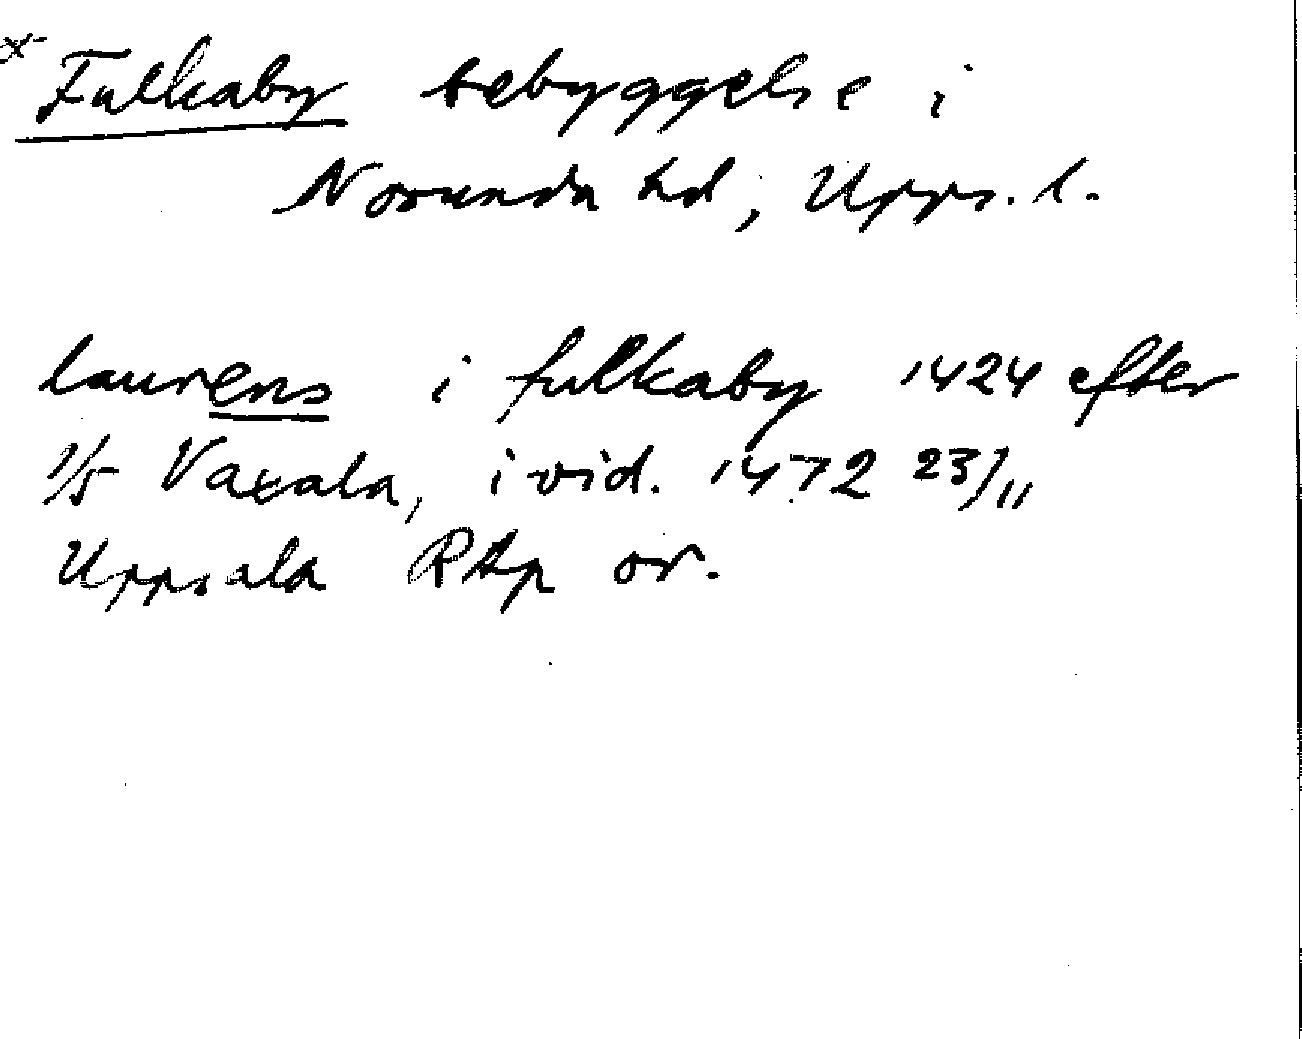 x Fulkaby bebyggelse i
Norunda hd, Upps. l.
laurens i fulkaby 1424 efter
1/5 Vaxala, i vid. 1472 23/11
Uppsala RAp or.